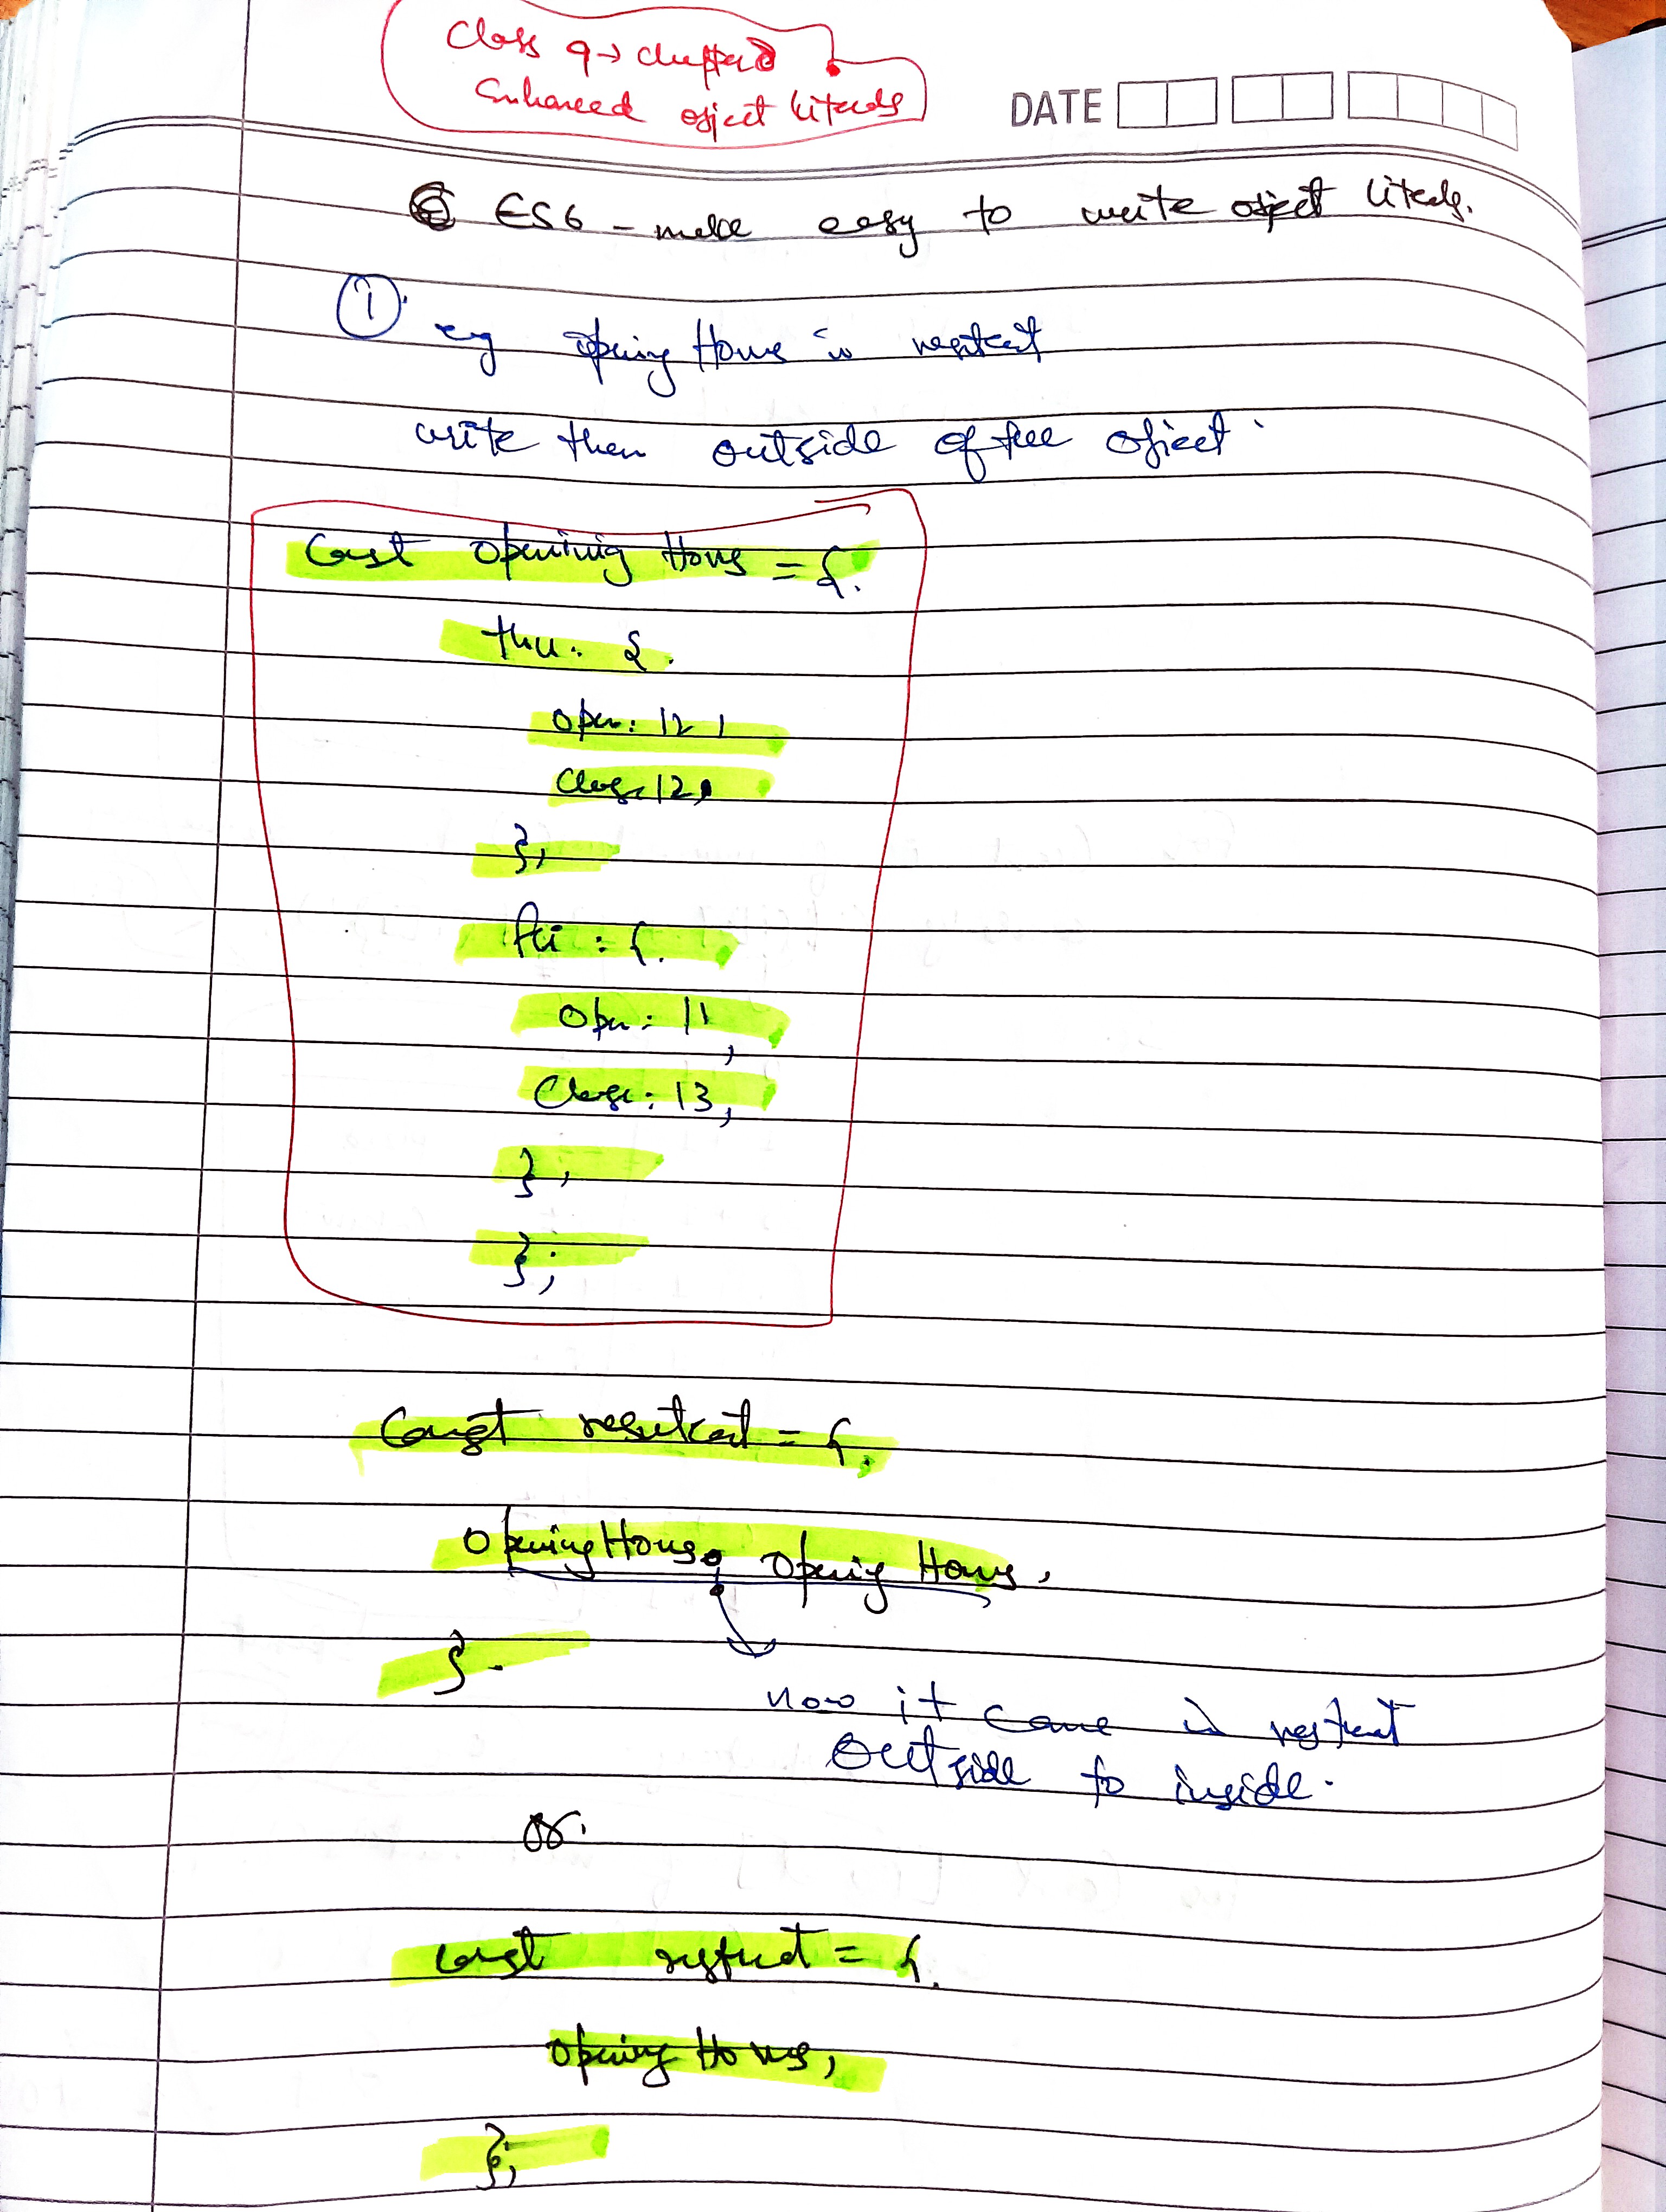 Class 9 → chapter
Enhanced object literals
DATE
ES6 - make easy to write object literals.
1
eg opening Hours in restrant
write then outside of the object.
Const opening Hours = {
thu: {
open: 12,
Close: 12,
},
fri : {
Open: 11,
Close: 13,
},
};
Const restrant = {
OpeningHours: Opening Hours,
}
now it came in restrant
outside to inside.
or.
const restrant = {
opening Hours,
};